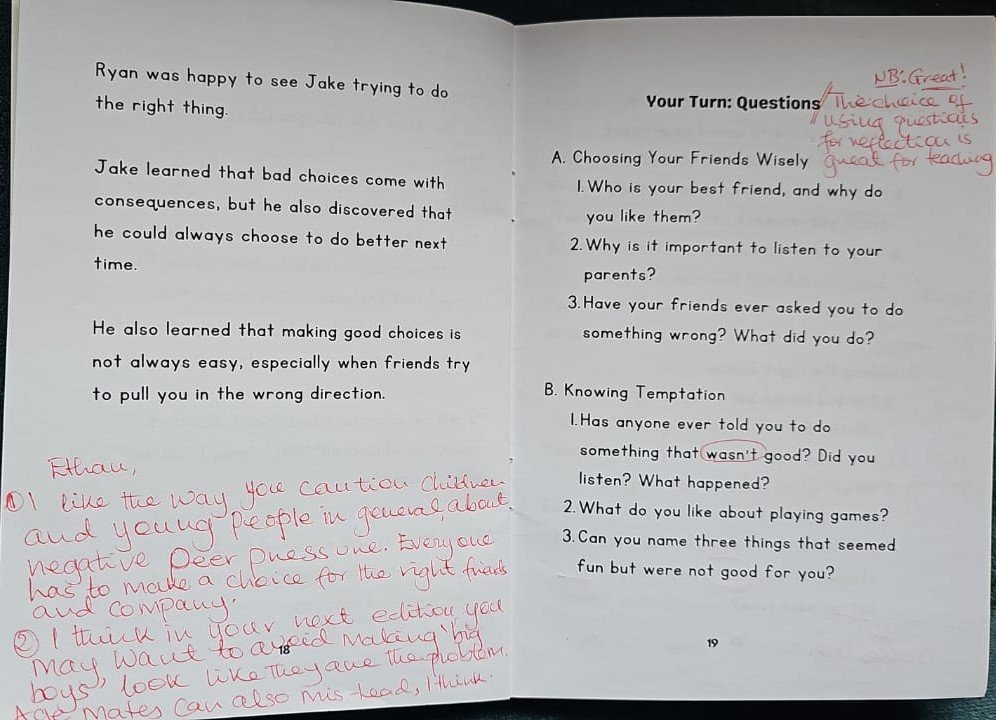 Ryan was happy to see Jake trying to do
the right thing.
Jake learned that bad choices come with
consequences, but he also discovered that
he could always choose to do better next
time.
He also learned that making good choices is
not always easy, especially when friends try
to pull you in the wrong direction.
Ethan,
① I like the way you caution children
and young people in general, about
negative peer pressure. Everyone
has to make a choice for the right friends
and company.
② I think in your next edition you
may want to avoid making 'big
boys' look like they are the problem.
Age mates can also mis-lead, I think.
18
NB: Great!
Your Turn: Questions
The choice of
using questions
for reflection is
great for teaching
A. Choosing Your Friends Wisely
1. Who is your best friend, and why do
you like them?
2. Why is it important to listen to your
parents?
3. Have your friends ever asked you to do
something wrong? What did you do?
B. Knowing Temptation
1. Has anyone ever told you to do
something that wasn't good? Did you
listen? What happened?
2. What do you like about playing games?
3. Can you name three things that seemed
fun but were not good for you?
19